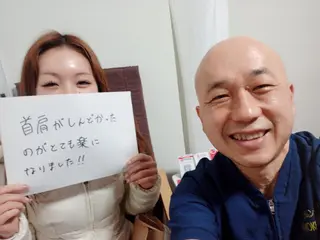 首肩がしんどかった
のがとても楽に
なりました!!